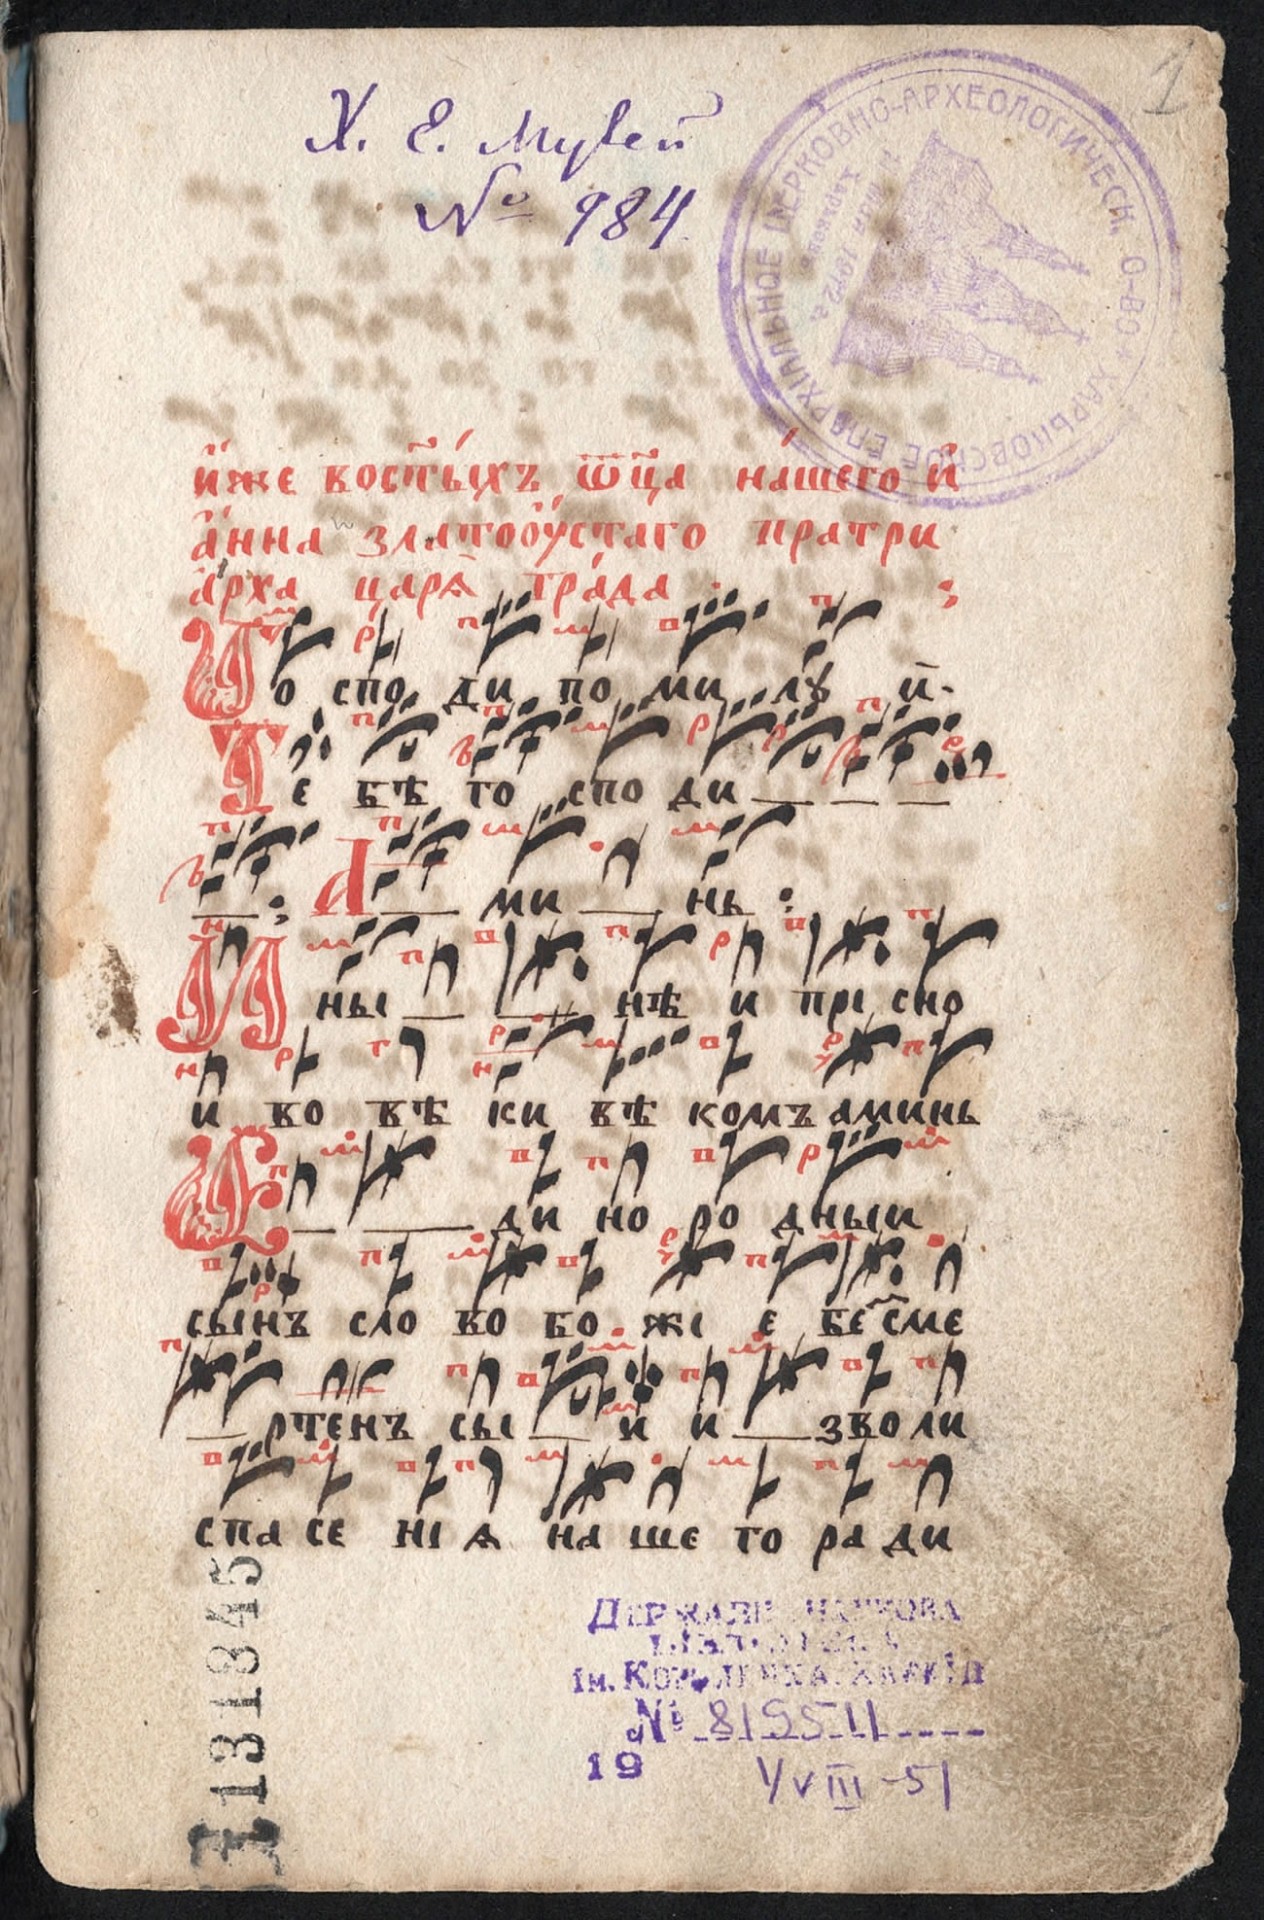 1
Х. Е. Музей
№ 984.
ХАРЬКОВСКОЕ ЕПАРХІАЛЬНОЕ ЦЕРКОВНО-АРХЕОЛОГИЧЕСК. О-ВО
и҆́же восты́хъ ѿц҃а на́шего и҆
а҆́нна златоꙋ́стаго пратри
а҆́рха царѧ̀ гра́да
Го спо ди по ми лꙋ и.
Те бѣ го спо ди
А ми нь
И ны нѣ и при сно
и во вѣ ки вѣ комъ аминь
Е ди но ро дныи
сынъ сло во бо жі е бе сме
ртенъ сы и и зволи
спа се ні ѧ на ше го ра ди
1131846
ДЕРЖАВНА НАУКОВА
БІБЛІОТЕКА
Ім. КОРОЛЕНКА. ХАРКІВ
№ 815511
19
VIII-51